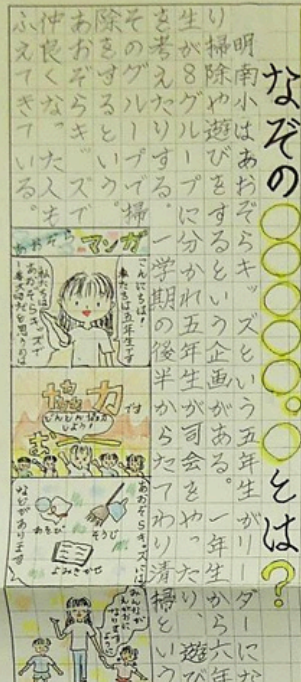 なぞの○○○○○。○とは?
明南小はあおぞらキッズという五年生がリーダーにな
り掃除や遊びをするという企画がある。一年生から六年
生が8グループに分かれ五年生が司会をやったり遊び
を考えたりする。一学期の後半からたてわり清掃という
そのグループで掃
除をするという。
あおぞらキッズで
仲良くなった人も
ふえてきている。
あおぞらマンガ
こんにちは!
私たちは五年生です
あおぞらキッズで
協力
です
どんどん協力
しよう!
お
あおぞらキッズには
あそび
そうじ
よみきかせ
などがあります
みんなが